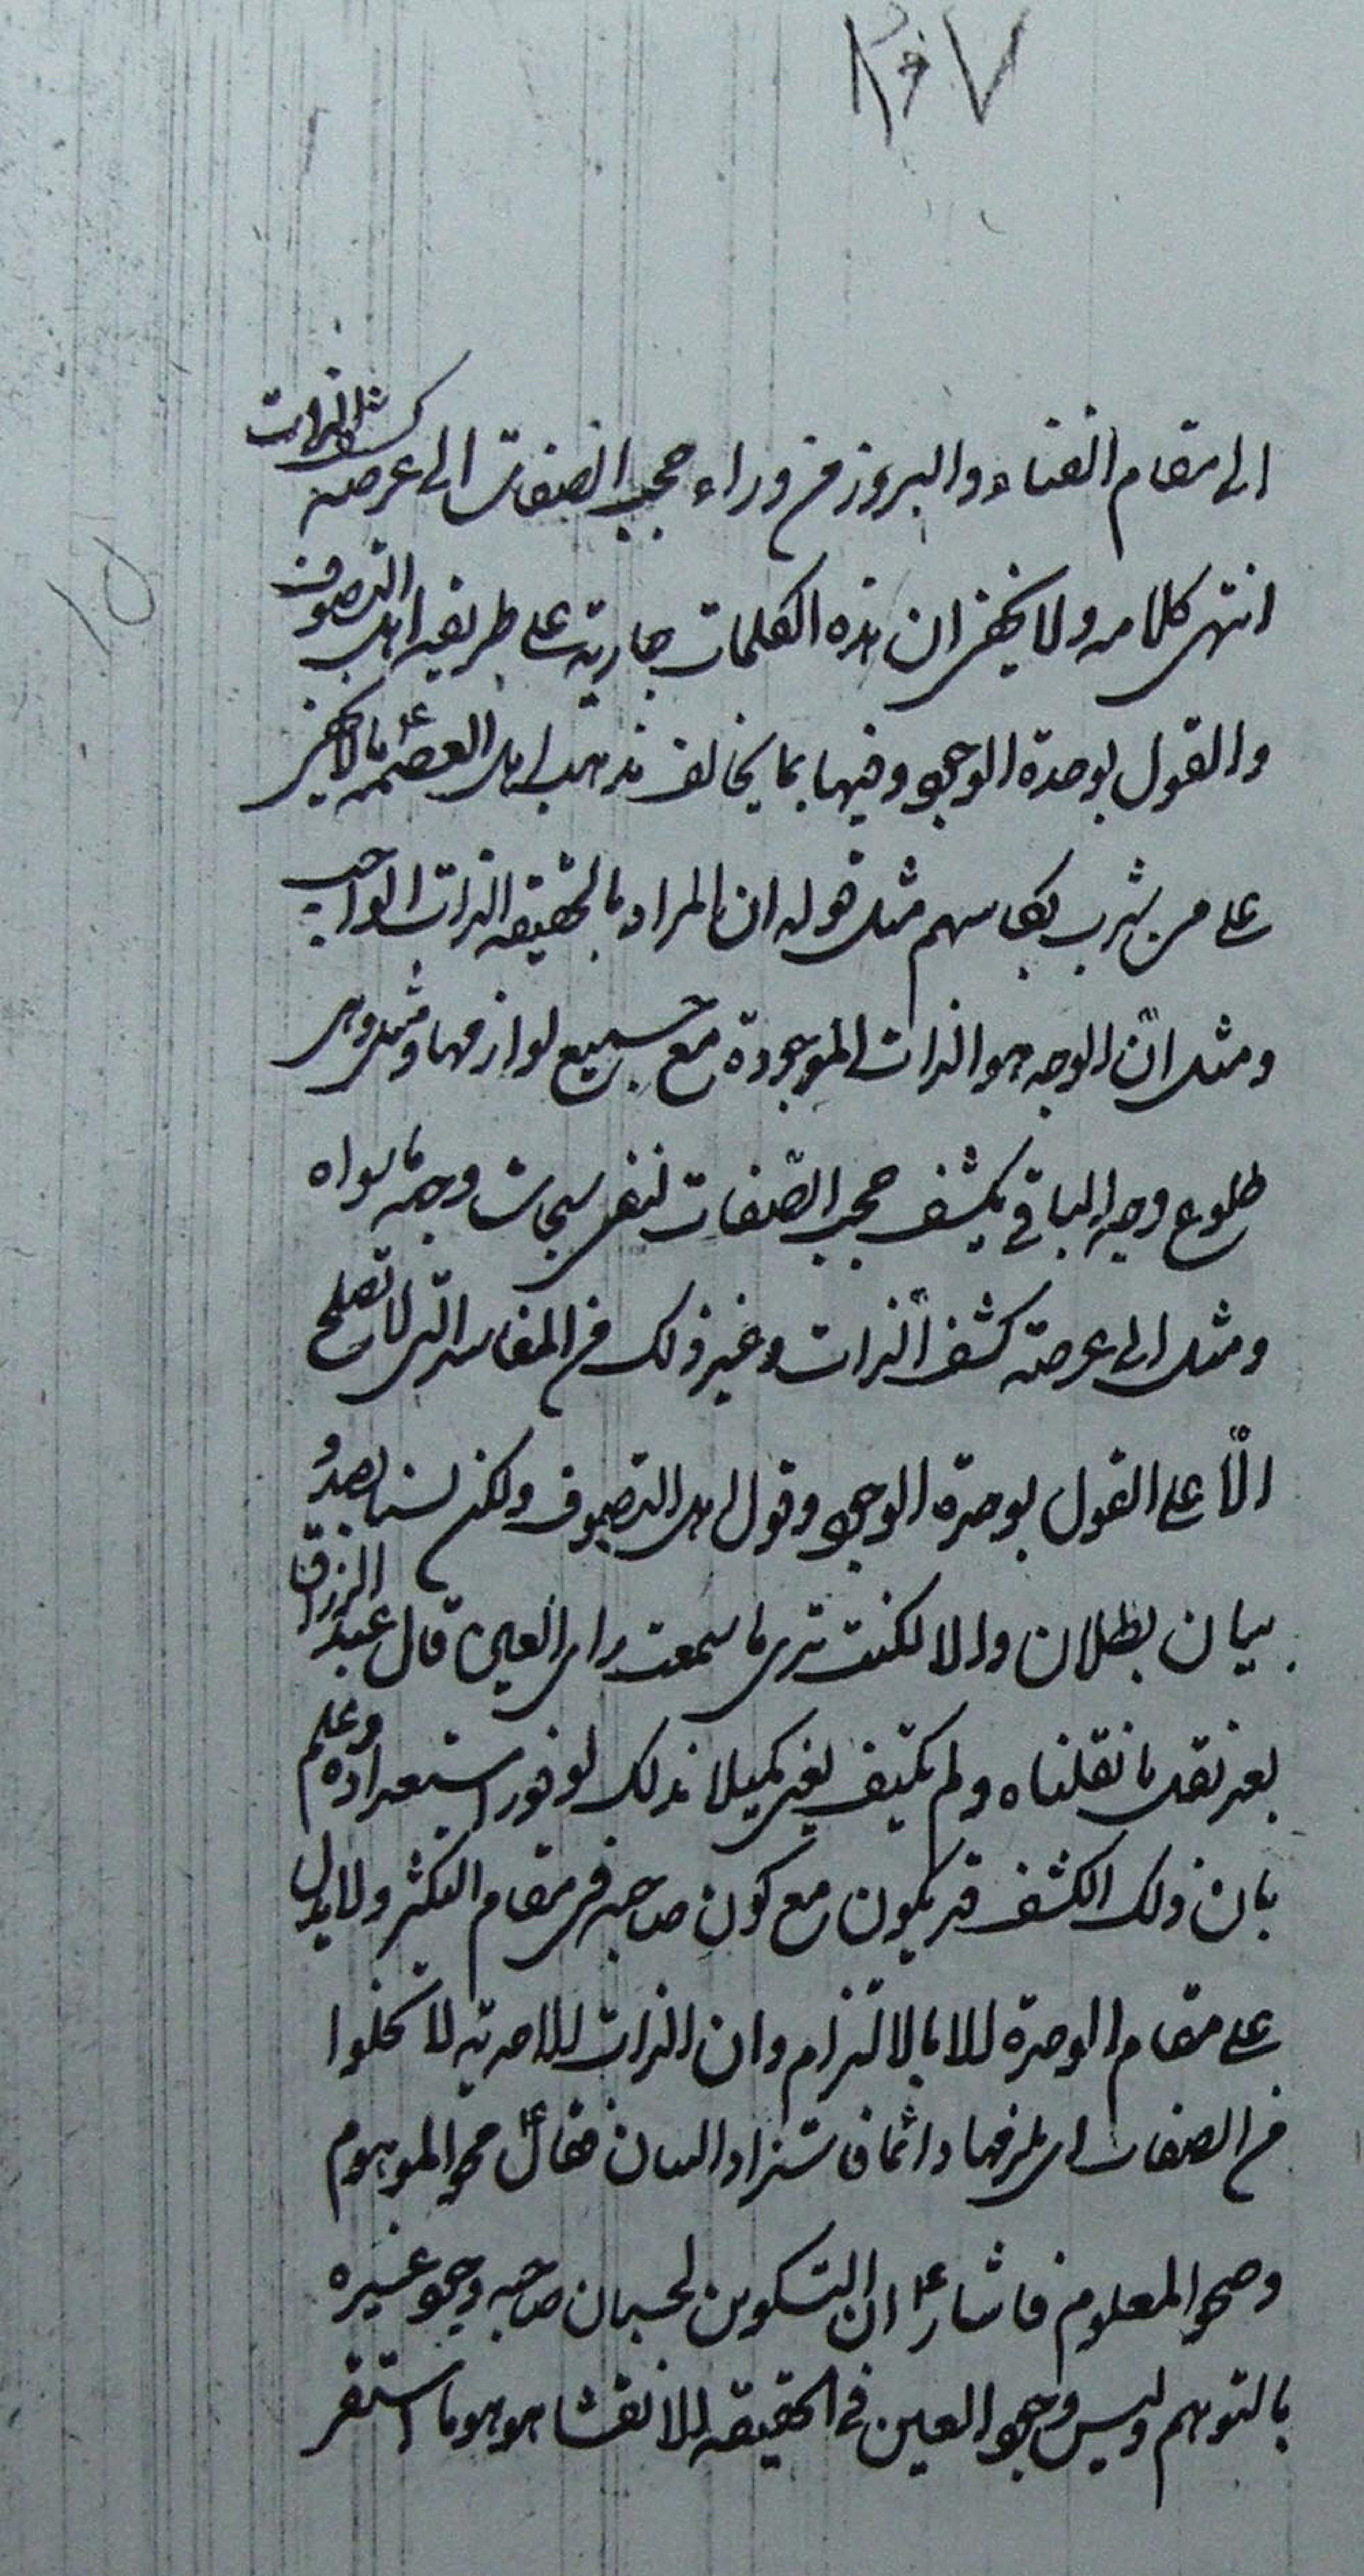 ٢٠٧
الى مقام الفناء والبروز من وراء حجب الصفات الى عرصه كشف الذات
انتهى كلامه ولا يخفى ان هذه الكلمات جارية على طريقه اهل التصوف
والقول بوحدة الوجود وفيها بما يخالف مذهب اهل العصمه ع ما لا يخفى
على من يشرب بكاسهم مثل قوله ان المراد بالحقيقه الذات الواجب
ومثل انّ الوجه هو الذات الموجودة مع جميع لوازمها ومثل وهى
طلوع وجه الباقى بكشف حجب الصّفات لنفى سبحات وجهه ما سواه
ومثل الى عرصة كشف الذات وغير ذلك من المفاسد التى لا تصلح
الّا على القول بوحدة الوجود وقول اهل التصوف ولكن لسنا بصدد
بيان بطلان والا لكنت ترى ما سمعت راى العين قال عبد الرزاق
بعد نقل ما نقلناه ولم يكتف لغير كميلا بذلك لوفور استعداده وعلم
بان ذلك الكشف قد يكون مع كون صاحبه فى مقام التكثر ولا يدل
على مقام الوحدة الا بالالتزام وان الذات الاحدية لا تخلوا
من الصفات اى يلزمها دائما فاستزاد البيان فقال ع محو الموهوم
وصحو المعلوم فاشار ع ان التكوين لحسبان صاحبه وجود غيره
بالتوهم وليس وجود العين فى الحقيقه الا نقشا موهوما استقر